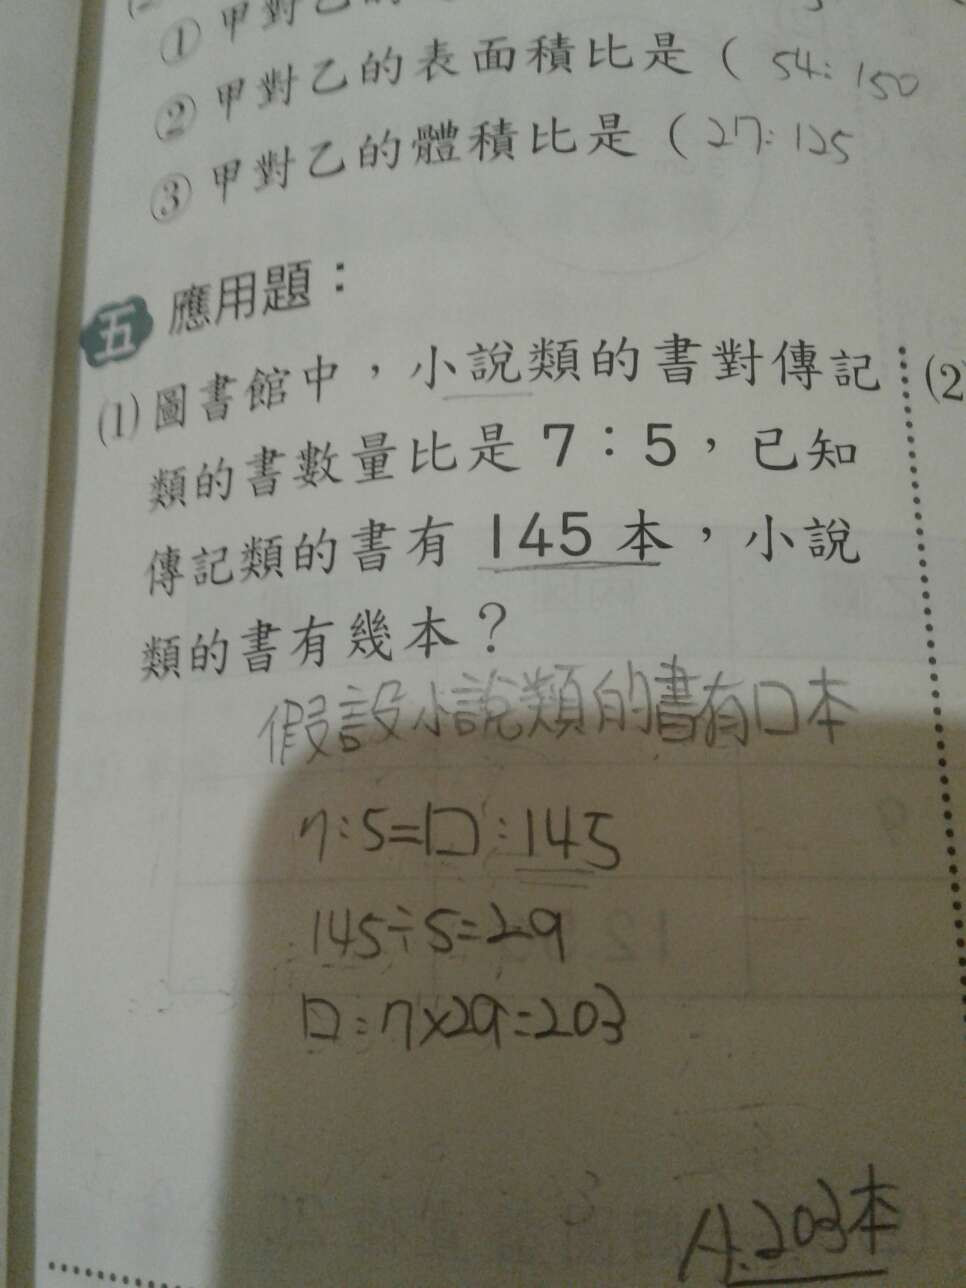 ① 甲對乙的
② 甲對乙的表面積比是 ( 54:150
③ 甲對乙的體積比是 ( 27:125
五 應用題：
(1) 圖書館中，小說類的書對傳記
類的書數量比是 7：5，已知
傳記類的書有 145 本，小說
類的書有幾本？
假設小說類的書有口本
7:5=口:145
145÷5=29
口=7×29=203
A:203本
(2)